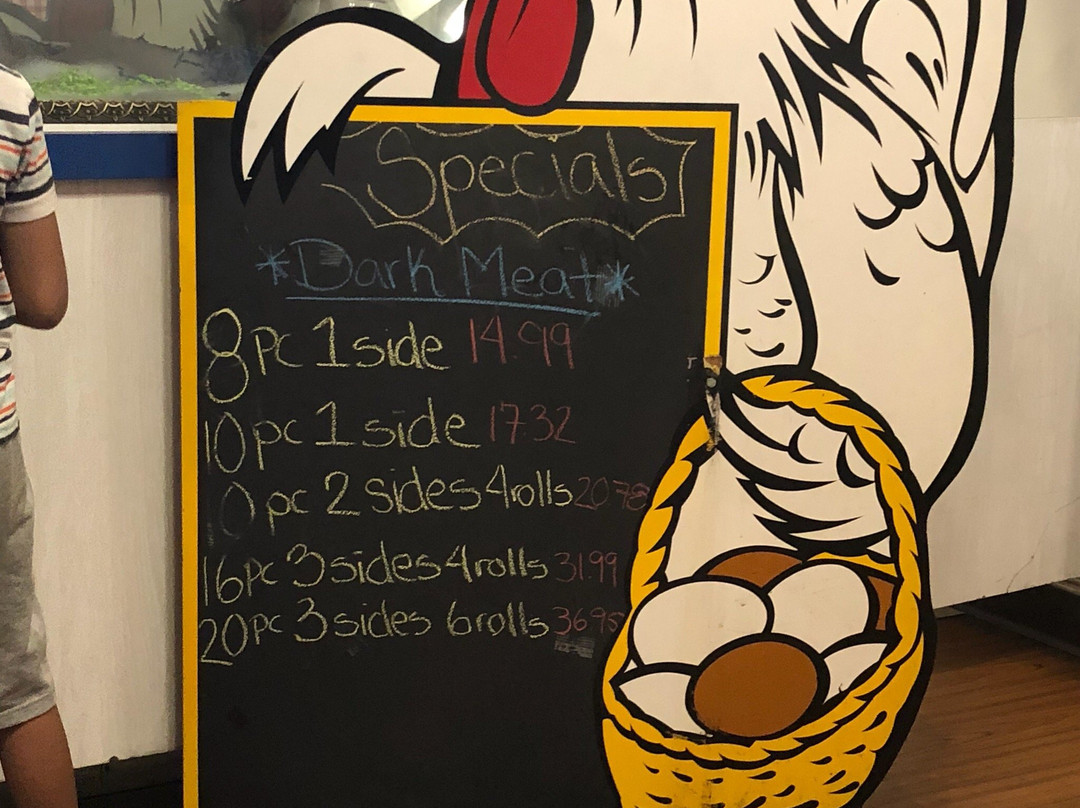 Specials
*Dark Meat*
8pc 1 side 14.99
10 pc 1 side 17.32
10 pc 2 sides 4 rolls 20.78
16pc 3 sides 4 rolls 31.99
20pc 3 sides 6 rolls 36.95